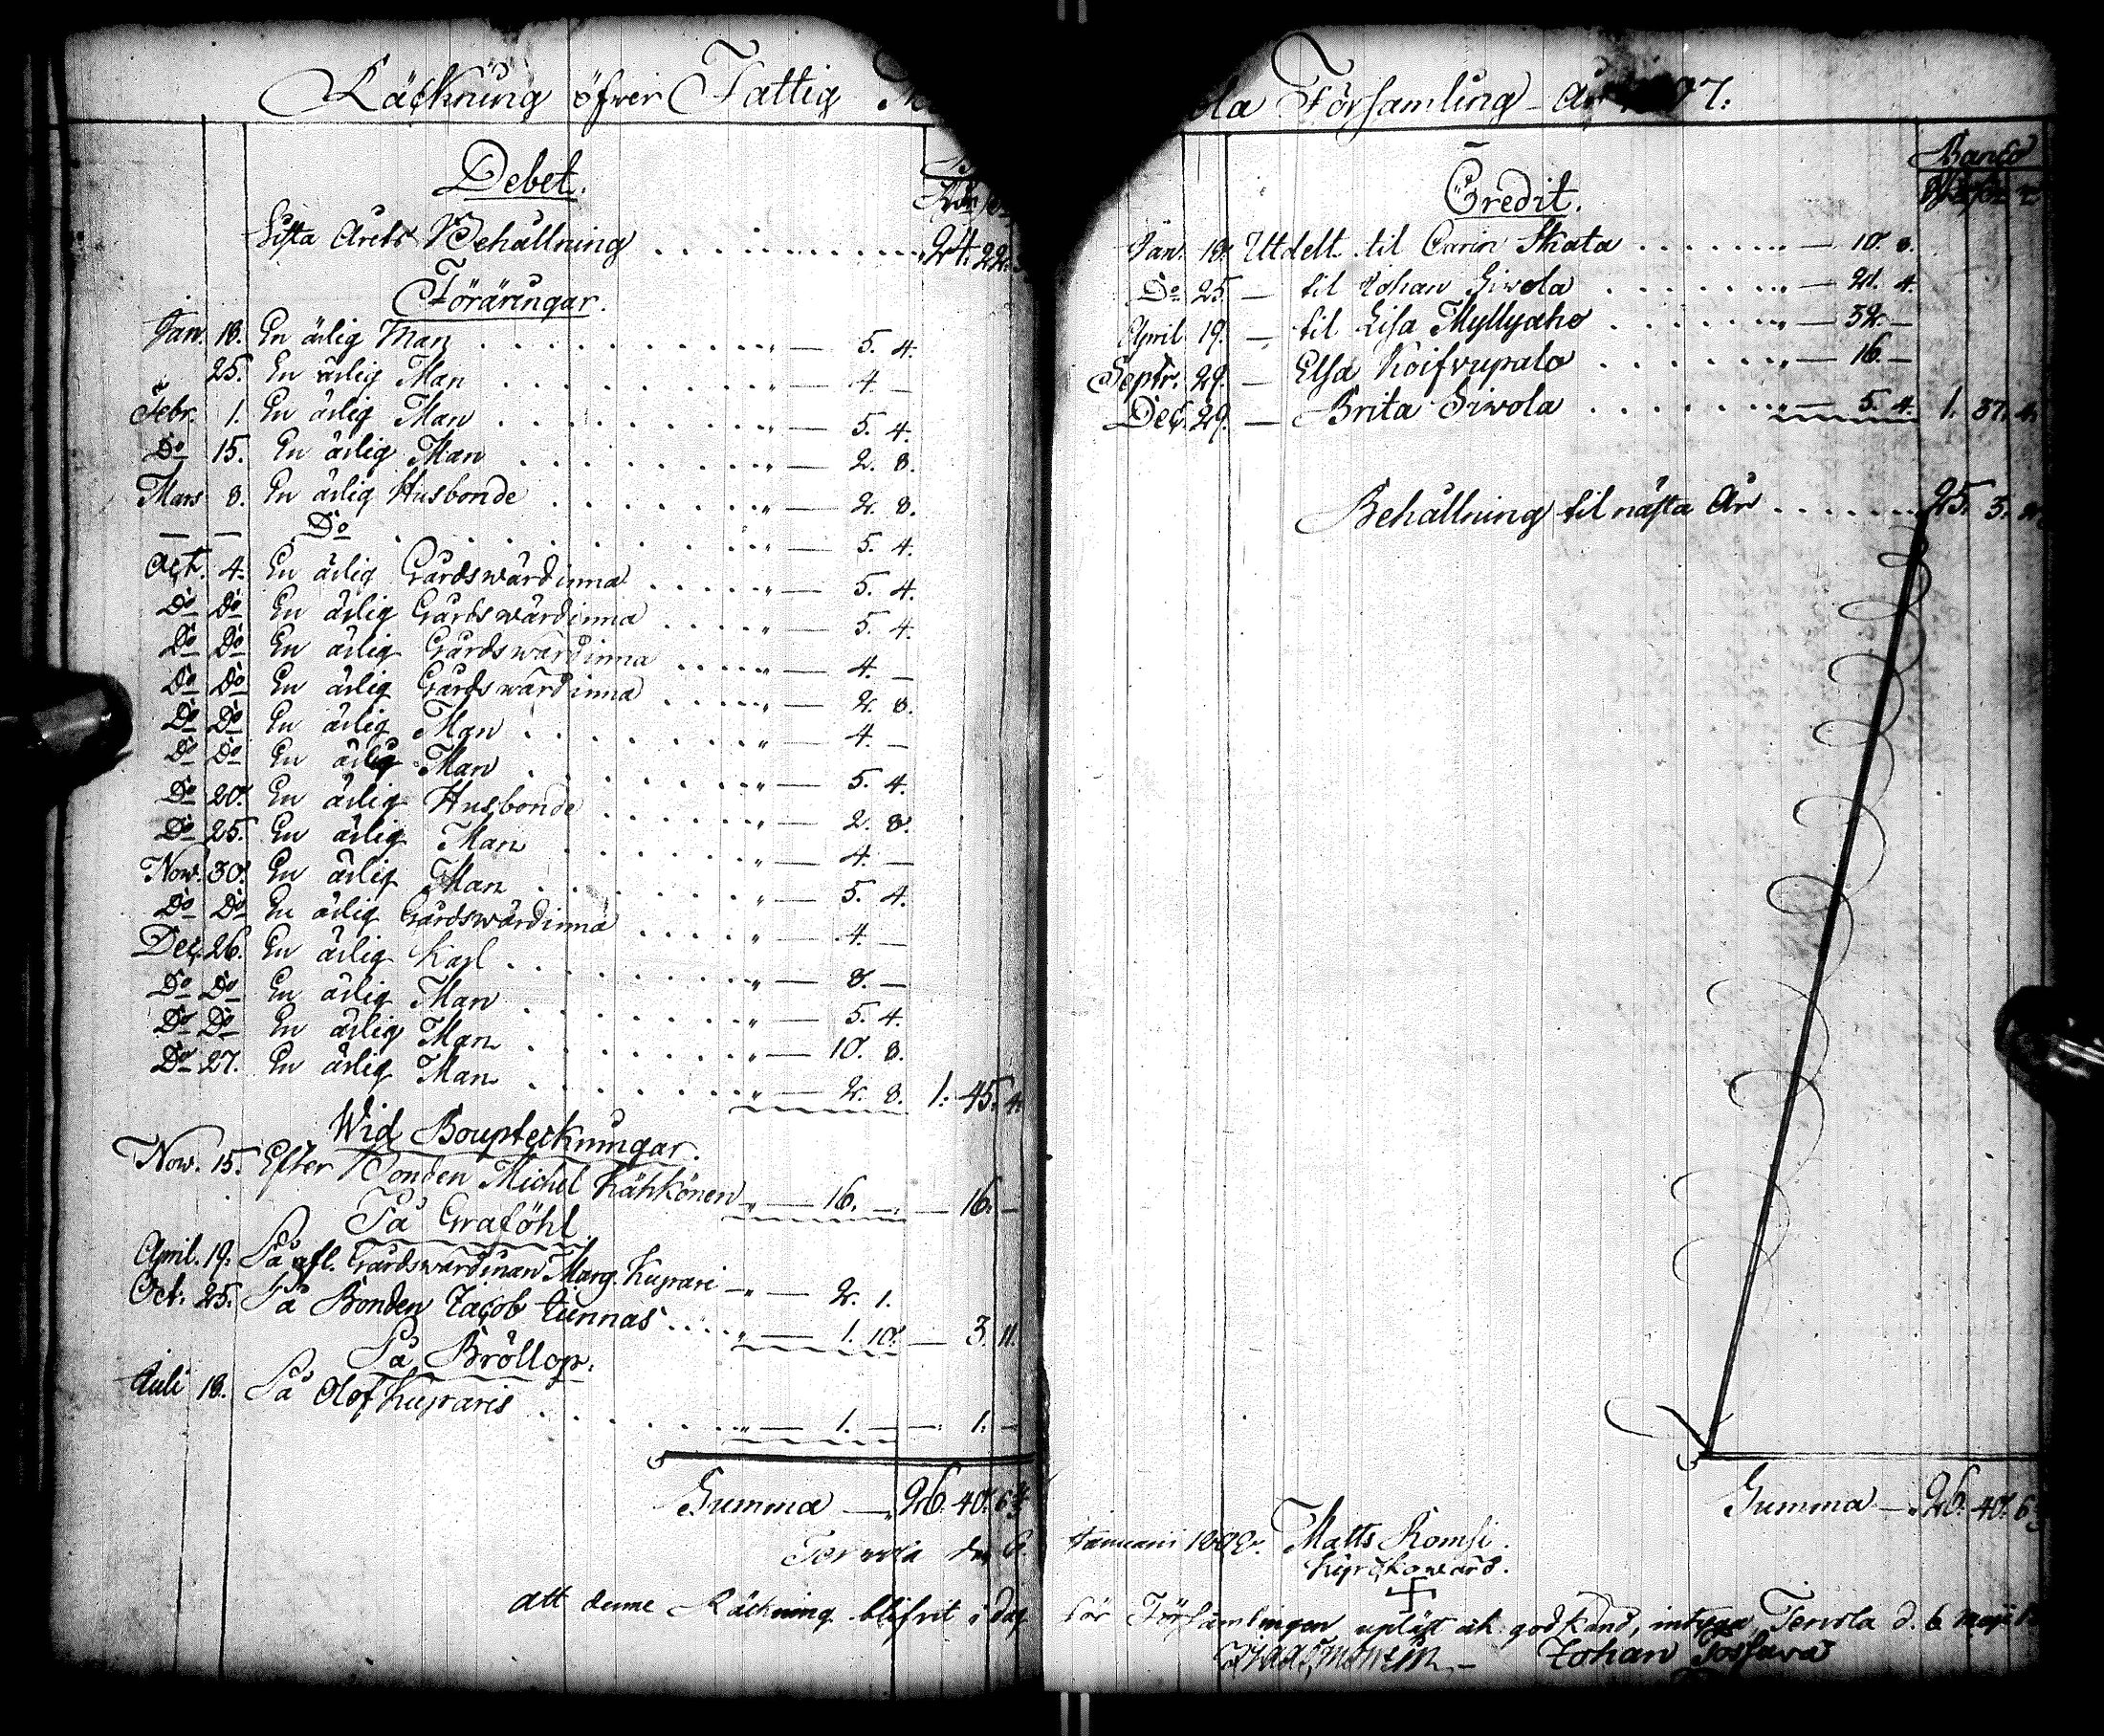 Räckning öfwer Fattig
Debet.
Sista Årets Behållning . . . 24. 22.
Föräringar.
Jan. 18. En ärlig Man . . . " — 5. 4.
25. En ärlig Man . . . " — 4. —
Febr. 1. En ärlig Man . . . " — 5. 4.
Do 15. En ärlig Man . . . " — 2. 8.
Mars 8. En ärlig Husbonde . . . " — 2. 8.
— — Do . . . " — 5. 4.
Oct. 4. En ärlig Gårdswärdinna . . . " — 5. 4.
Do Do En ärlig Gårdswärdinna . . . " — 5. 4.
Do Do En ärlig Gårdswärdinna . . . " — 4. —
Do Do En ärlig Gårdswärdinna . . . " — 2. 8.
Do Do En ärlig Man . . . " — 4. —
Do Do En ärlig Man . . . " — 5. 4.
Do 20. En ärlig Husbonde . . . " — 2. 8.
Do 25. En ärlig Man . . . " — 4. —
Now. 30. En ärlig Man . . . " — 5. 4.
Do Do En ärlig Gårdswärdinna . . . " — 4. —
Dec. 26. En ärlig Karl . . . " — 8. —
Do Do En ärlig Man . . . " — 5. 4.
Do Do En ärlig Man . . . " — 10. 8.
Do 27. En ärlig Man . . . " — 2. 8. 1. 45. 4.
Wid Boupteckningar.
Now. 15. Efter Bonden Michel Kähkönen " — 16. — — 16. —
På Graföhl
April. 19. På afl. Gårdswärdinan Marg. Kuprari — " — 2. 1.
Oct. 25. På Bonden Jacob Tunnas . . . " — 1. 10. — 3. 11.
På Bröllop.
Juli 18. På Olof Kupraris . . . " — 1. — — 1. —
Summa — 26. 40. 6
Tervola den 6.
Att denne Räckning blifvit i dag
ola Församling År 7.
Credit.
Banco
Jan. 18. Utdelt til Carin Skata . . . " — 10. 8.
Do 25 — til Johan Siwola . . . " — 21. 4.
April 19. — til Lisa Myllyaho . . . " — 32. —
Septr. 29. — Elsa Koifvupalo . . . " — 16. —
Dec. 29. — Brita Siwola . . . " — 5. 4. 1. 37. 4.
Behållning til nästa År . . . 25. 3.
Summa — 26. 40. 6
Januarii 1808. Matts Romsi.
Kyrckowärd.
för Församlingen upläst och godkänd, intyga, Tervola d. 6 Maji
Johan